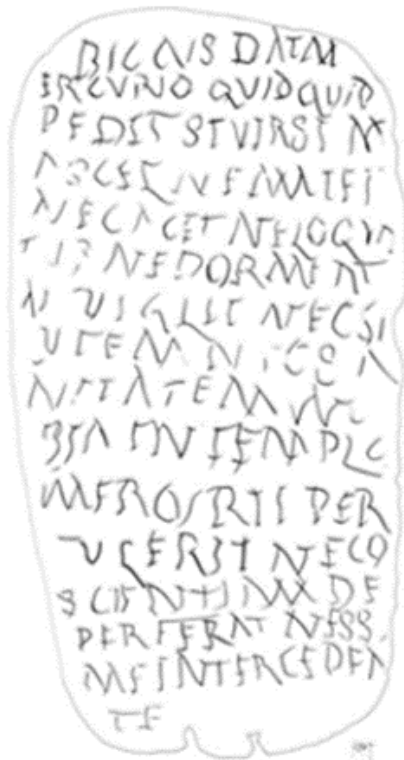 BICCUS DAT M
ERCVRIO QUIDQUID
PEDIT SI VIR SI M
ASCEL NE MEIET
NE CACET NE LOQUA
TUR NE DORMIAT
N VIGILET NEC S
UTEM NEC SA
NITATEM NE
SSI IN TEMPLO
MERCURII PER
TULERIT NE CO
SCIENTIAM DE
PERFERAT NESS
ME INTERCEDEN
TE